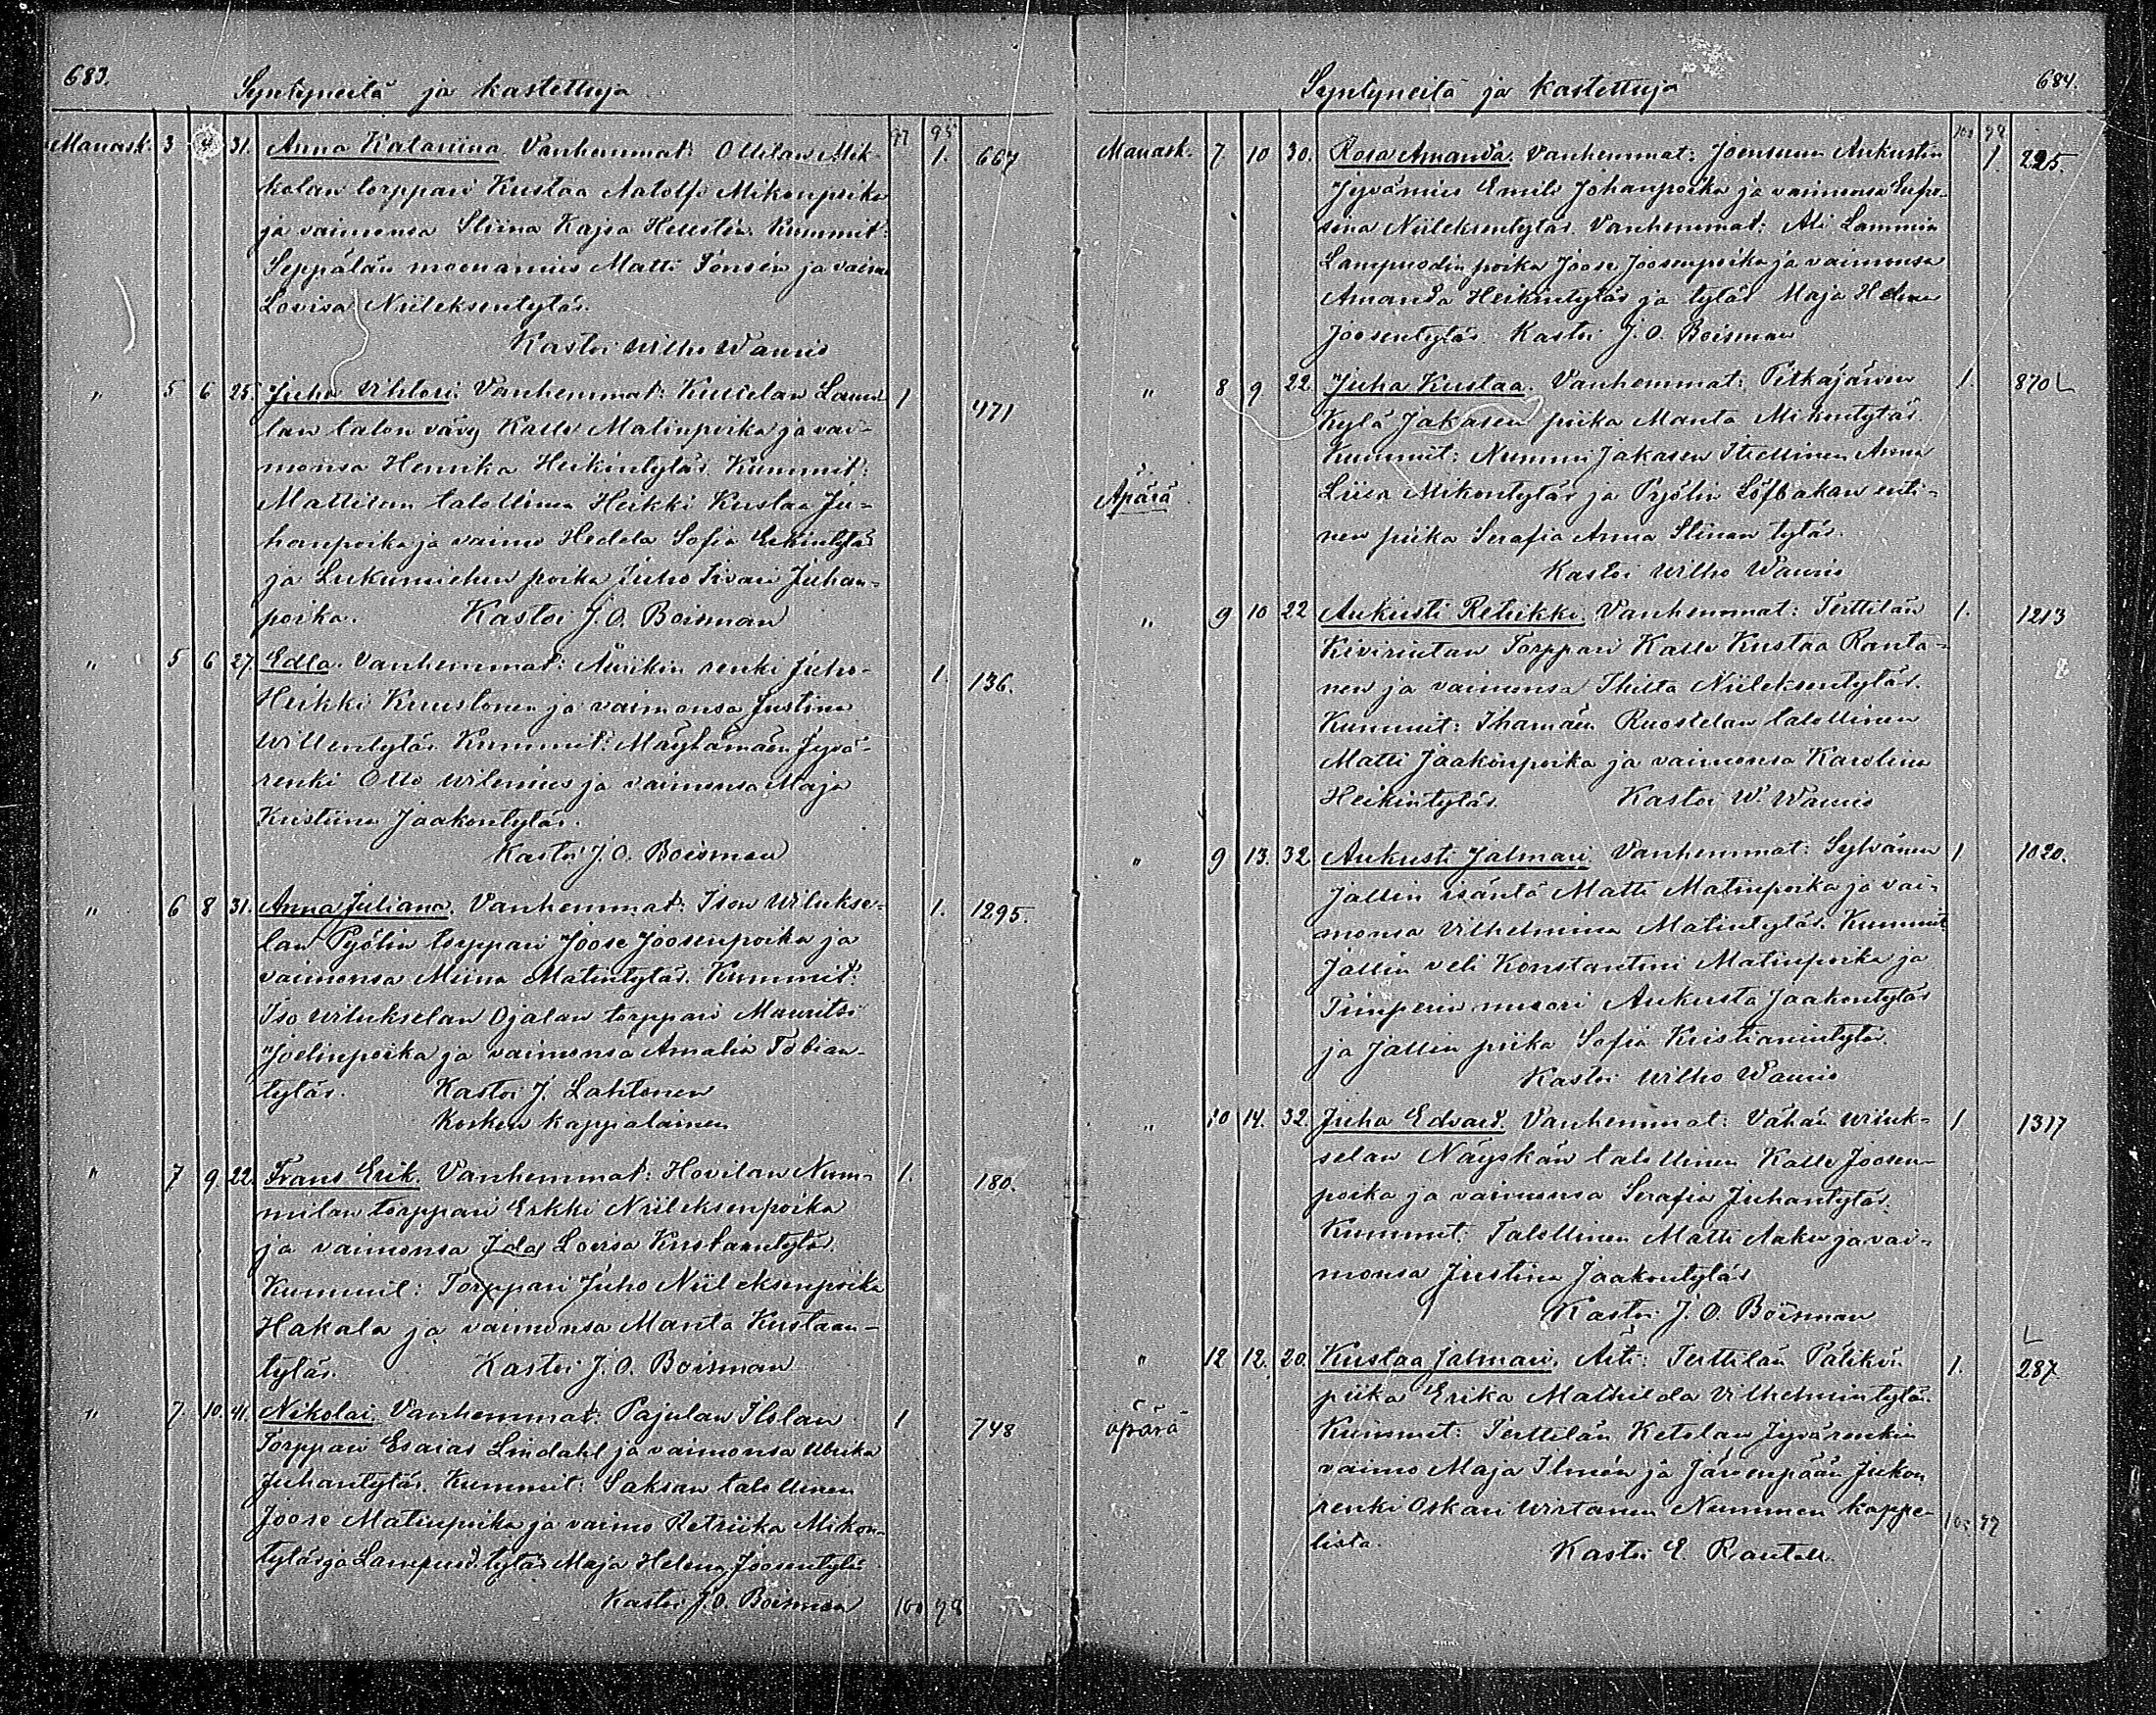 683.
Syntyneitä ja kastettuja
97 95
Marrask. 3 31. Anna Katariina. Vanhemmat: Ottilan Mik- 1. 667
kolan torppari Kustaa Aatolfi Mikonpoika
ja vaimonsa Stiina Kajsa Hellstén. Kummit:
Seppälän moonamies Matti Fonsén ja vaimo
Lovisa Niileksentytär.
Kastoi Wilho Waurio
" 5 6 25. Juho Vihtori. Vanhemmat: Kuttelan Lauri- 1 471
lan talon vävy Kalle Matinpoika ja vai-
monsa Henrika Heikintytär. Kummit:
Mattilan talollinen Heikki Kustaa Ju-
hanpoika ja vaimo Hedda Sofia Erkintytär
ja Lukumiehen poika Juho Iivari Juhan-
poika. Kastoi J. O. Boisman
" 5 6 27. Edla. Vanhemmat: renki Juho- 1 136.
Heikki Kuustonen ja vaimonsa Justina
Willentytär. Kummit: Mäyhämäen Jyvä-
renki Otto Wilenius ja vaimonsa Maja
Kristiina Jaakontytär.
Kastoi J. O. Boisman
" 6 8 31. Anna Juliana. Vanhemmat: Ison Wilukse- 1. 1295.
lan Pyölin torppari Joose Joosenpoika ja
vaimonsa Miina Matintytär. Kummit:
Iso Wilukselan Ojalan torppari Mauritsi
Joelinpoika ja vaimonsa Amalia Tobian-
tytär. Kastoi J. Lahtonen
Kosken kappalainen
" 7 9 22. Frans Erik. Vanhemmat: Hovilan Num- 1. 180.
milan torppari Erkki Niileksenpoika
ja vaimonsa Ida Lovisa Kustaantytär.
Kummit: Torppari Juho Niileksenpoika
Hakala ja vaimonsa Manta Kustaan-
tytär. Kastoi J. O. Boisman
" 7. 10. 41. Nikolai. Vanhemmat: Pajulan Ilolan 1 748
Torppari Esaias Lindahl ja vaimonsa Ulrika
Juhantytär. Kummit: Saksan talollinen
Joose Matinpoika ja vaimo Retriika Mikon-
tytär ja Lampuod. tytär Maja Helena Joosentytär
Kastoi J. O. Boisman 100 98
Syntyneitä ja kastettuja
684.
Marrask. 7. 10 30. Rosa Amanda. Vanhemmat: Joensuun Aukustin 1. 225.
Jyvämies Emil Johanpoika ja vaimonsa Eufro-
sina Niileksentytär. Vanhemmat: Ali Lammin
Lampuodin poika Joose Joosenpoika ja vaimonsa
Amanda Heikintytär ja tytär Maja Helena
Joosentytär. Kastoi J. O. Boisman
" 8 9 22. Juha Kustaa. Vanhemmat: Pitkäjärven 1. 870
Kylä Jakasen piika Manta Mikontytär
Kummit: Nummi Jakasen Itsellinen Anna
Äpärä
Liisa Mikontytär ja Pyölin Löfbakan enti-
nen piika Serafia Anna Stiinan tytär.
Kastoi Wilho Waurio
" 9 10 22 Aukusti Retrikki. Vanhemmat: Terttilän 1. 1213
Kivirintan Torppari Kalle Kustaa Ranta-
nen ja vaimonsa Thilta Niileksentytär.
Kummit: Ihamäen Ruostelan talollinen
Matti Jaakonpoika ja vaimonsa Karolina
Heikintytär. Kastoi W. Waurio
" 9 13. 32 Aukusti Jalmari Vanhemmat: Sylvänen 1 1020.
Jallin isäntä Matti Matinpoika ja vai-
monsa Vilhelmina Matintytär. Kummit
Jallin veli Konstantini Matinpoika ja
Timperin muori Aukusta Jaakontytär
ja Jallin piika Sofia Kristianintytär.
Kastoi Wilho Waurio
" 10 14. 32. Juha Edvard. Vanhemmat: Vähän Wiluk- 1 1317
selan Näyskän talollinen Kalle Joosen-
poika ja vaimonsa Serafia Juhantytär.
Kummit: Talollinen Matti Aaker ja vai-
monsa Justina Jaakontytär
Kastoi J. O. Boisman
" 12 12. 20. Kustaa Jalmari. Äiti: Terttilän Pälikön 1. 287
piika Erika Mathilda Vilhelmintytär.
äpärä
Kummit: Terttilän Ketolan Jyvärenkin
vaimo Maja Ilmén ja Järvenpään Jukon
renki Oskari Wirtanen Nummen kappe-
lista. Kastoi E. Rantell